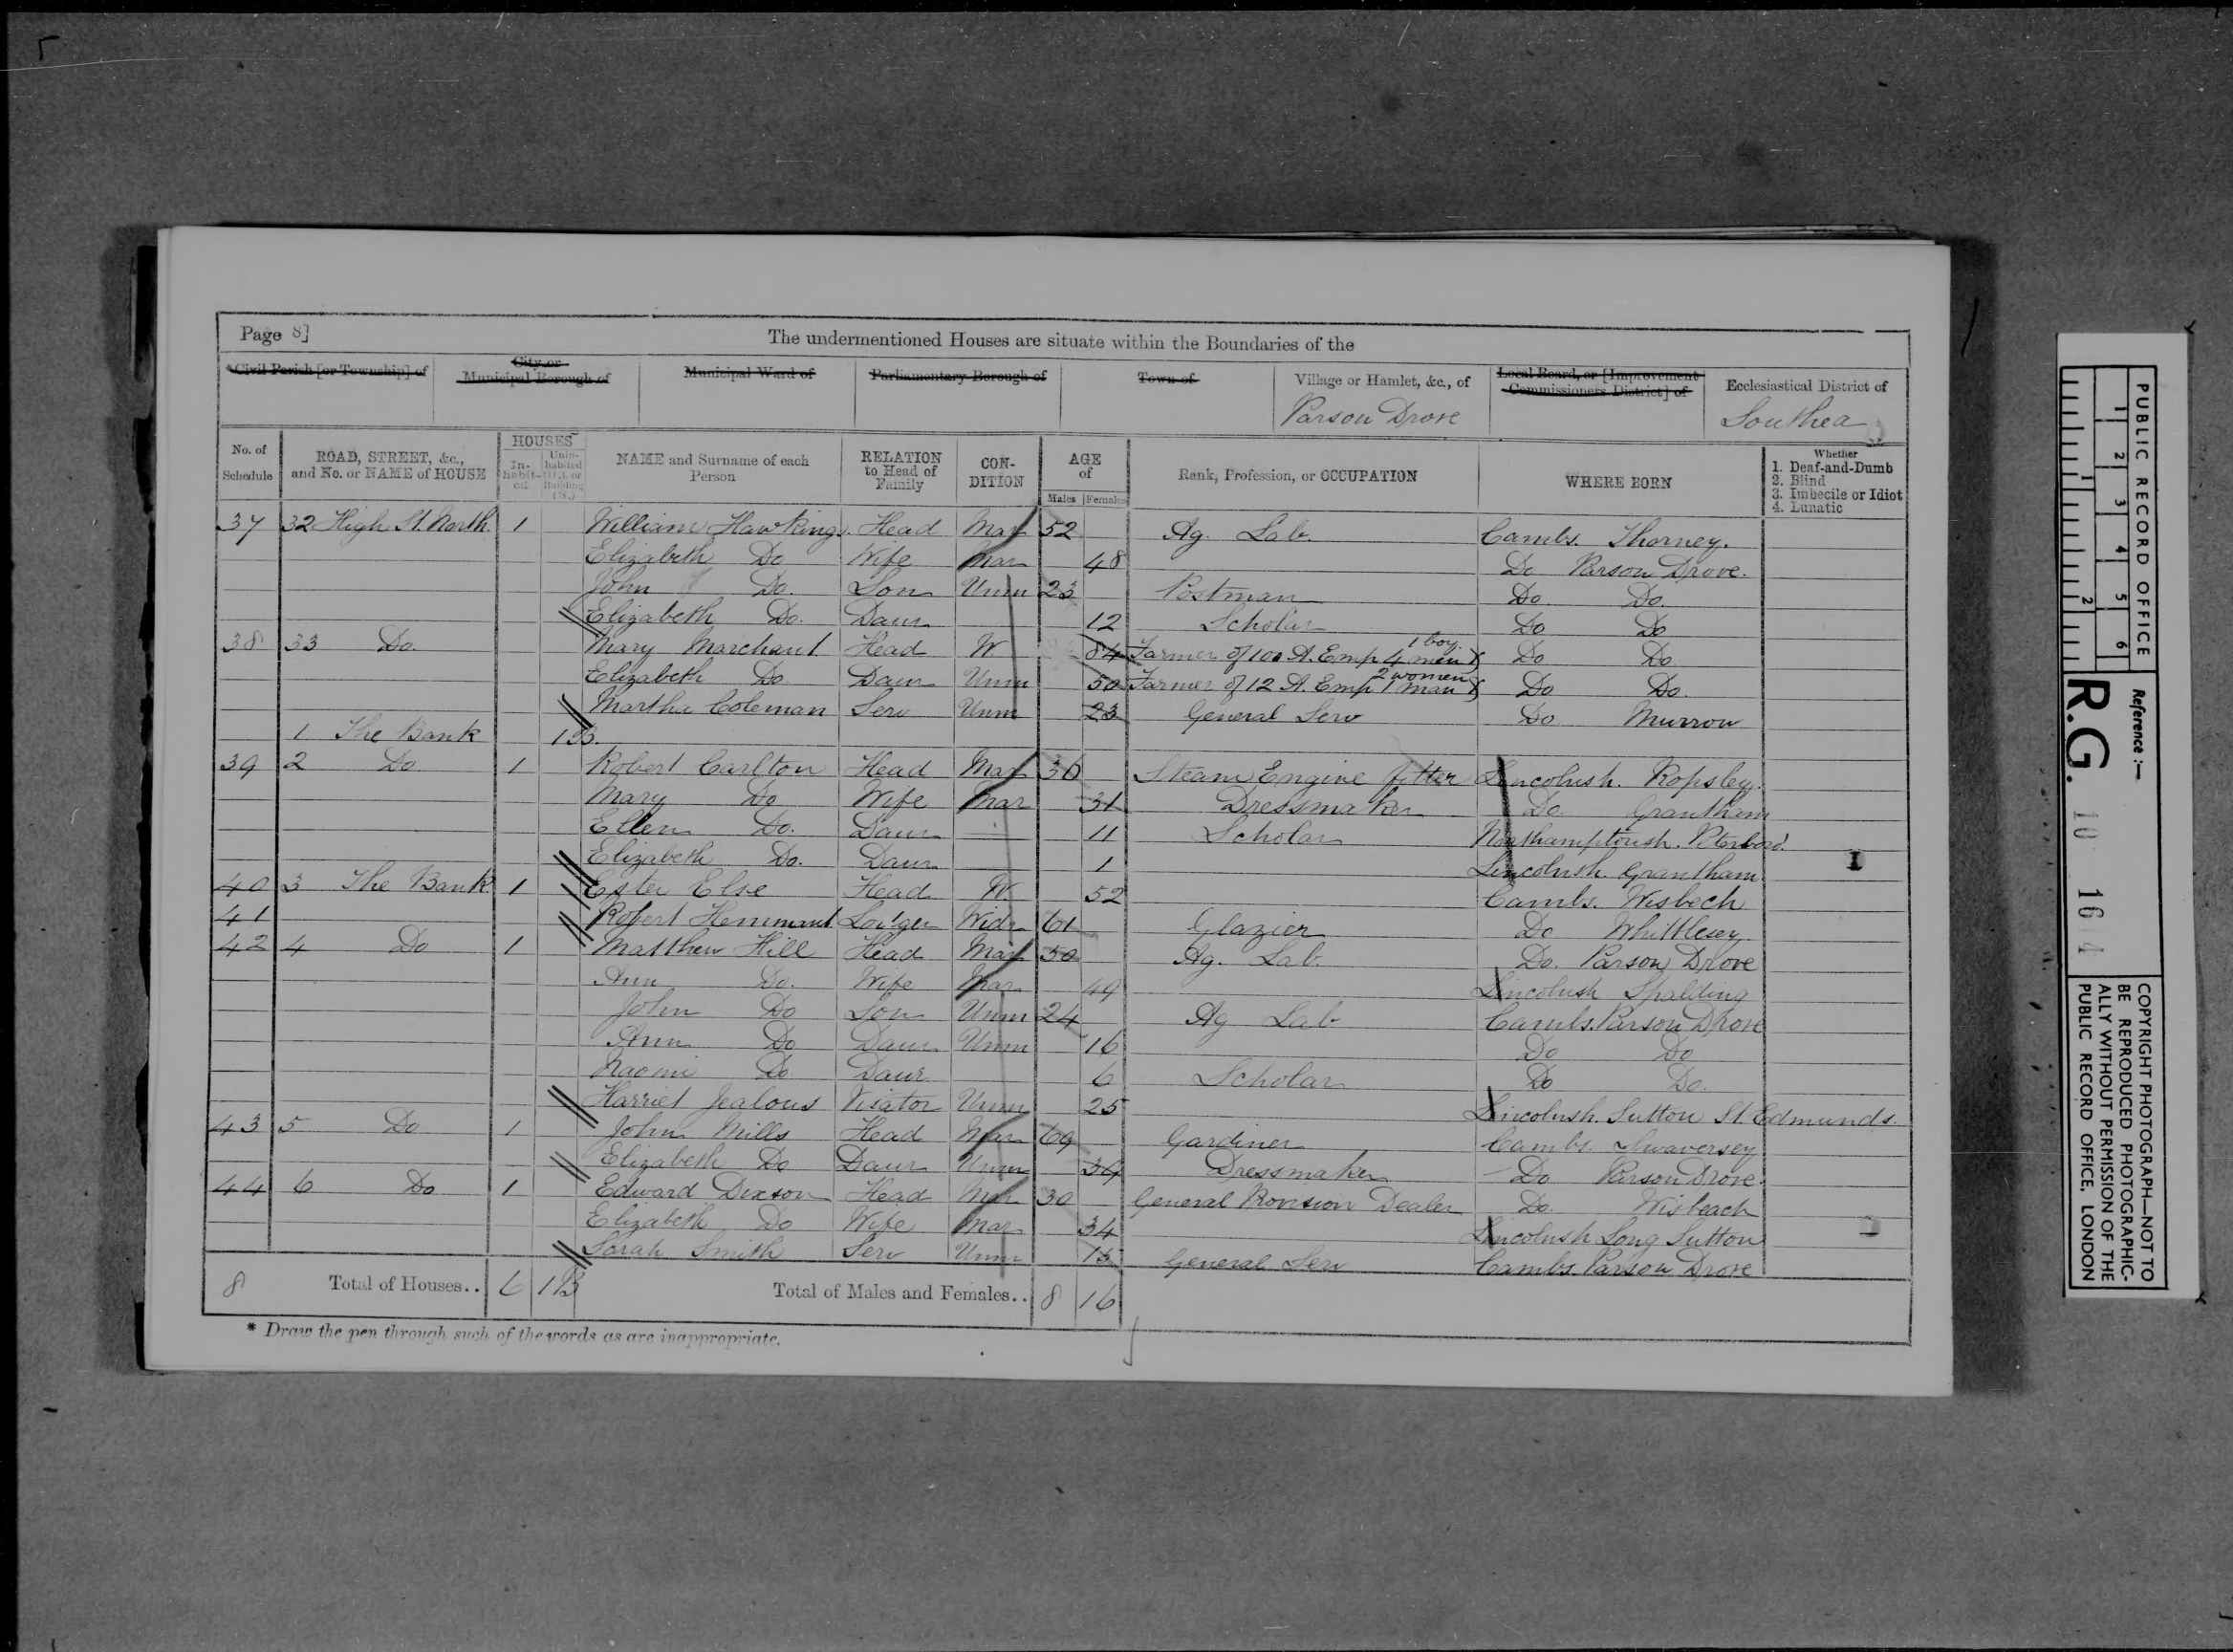 Page 8]
The undermentioned Houses are situate within the Boundaries of the
*Civil Parish [or Township] of
City or Municipal Borough of
Municipal Ward of
Parliamentary Borough of
Town of
Village or Hamlet, &c., of
Parson Drove
Local Board, or [Improvement Commissioners District] of
Ecclesiastical District of
Southea
No. of Schedule
ROAD, STREET, &c., and No. or NAME of HOUSE
HOUSES
In-habit-ed
Unin-habited (U.), or Building (B.)
NAME and Surname of each Person
RELATION to Head of Family
CON-DITION
AGE of
Males Females
Rank, Profession, or OCCUPATION
WHERE BORN
Whether
1. Deaf-and-Dumb
2. Blind
3. Imbecile or Idiot
4. Lunatic
37 32 High St. North 1 William Hawkings. Head Mar 52 Ag. Lab. Cambs. Thorney.
Elizabeth Do Wife Mar 48 Do Parson Drove.
John Do. Son Unm 23 Postman Do Do.
Elizabeth Do. Daur 12 Scholar Do Do
38 33 Do. Mary Marchant Head W 84 Farmer of 100 A. Emp 4 men 1 boy Do Do
Elizabeth Do. Daur Unm 50 Farmer of 12 A. Emp 1 man 2 women Do Do.
Martha Coleman Serv Unm 23 General Serv Do Murrow
1 The Bank 1B.
39 2 Do 1 Robert Carlton Head Mar 36 Steam Engine fitter Lincolnsh. Ropsley.
Mary Do Wife Mar 31 Dressmaker Do. Grantham
Ellen Do. Daur 11 Scholar Northamptonsh. Peterboro'.
Elizabeth Do. Daur 1 Lincolnsh. Grantham
40 3 The Bank 1 Ester Else Head W. 52 Cambs. Wisbech
41 Robert Hemmant Lodger Widr 61 Glazier Do Whittlesey
42 4 Do 1 Matthew Hill Head Mar 50 Ag. Lab. Do. Parson Drove
Ann Do. Wife Mar 49 Lincolnsh Spalding
John Do Son Unm 24 Ag Lab Cambs. Parson Drove
Ann Do Daur Unm 16 Do Do
Naomi Do Daur 6 Scholar Do Do.
Harriet Jealous Visator Unm 25 Lincolnsh. Sutton St. Edmunds.
43 5 Do 1 John Mills Head Mar 69 Gardiner Cambs. Swaversey
Elizabeth Do Daur Unm 34 Dressmaker Do Parson Drove.
44 6 Do 1 Edward Dixson Head Mar 30 General Provision Dealer Do. Wisbeach
Elizabeth Do Wife Mar 34 Lincolnsh Long Sutton
Sarah Smith Serv Unm 15 General Serv Cambs. Parson Drove
8 Total of Houses.. 6 1B Total of Males and Females.. 8 16
* Draw the pen through such of the words as are inappropriate.
PUBLIC RECORD OFFICE
1 2 3 4 5 6
1 2
Reference :—
R.G. 10 1614
COPYRIGHT PHOTOGRAPH—NOT TO
BE REPRODUCED PHOTOGRAPHIC-
ALLY WITHOUT PERMISSION OF THE
PUBLIC RECORD OFFICE, LONDON